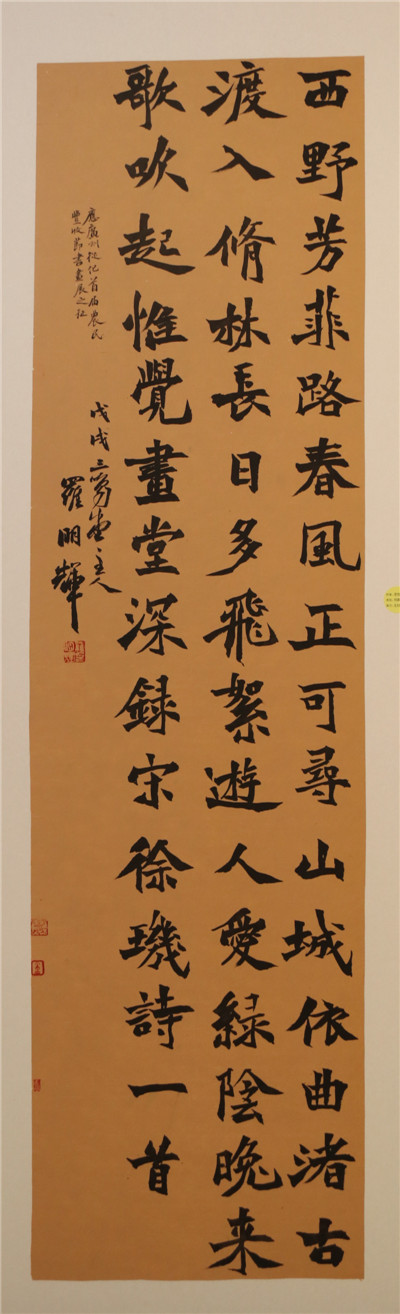 西野芳菲路春風正可尋山城依曲渚古
渡入脩林長日多飛絮遊人愛綠陰晚来
歌吹起惟覺畫堂深録宋徐璣詩一首
應廣州從化首届農民
豐收節書畫展之征
戊戌三芻堂主人
羅明輝